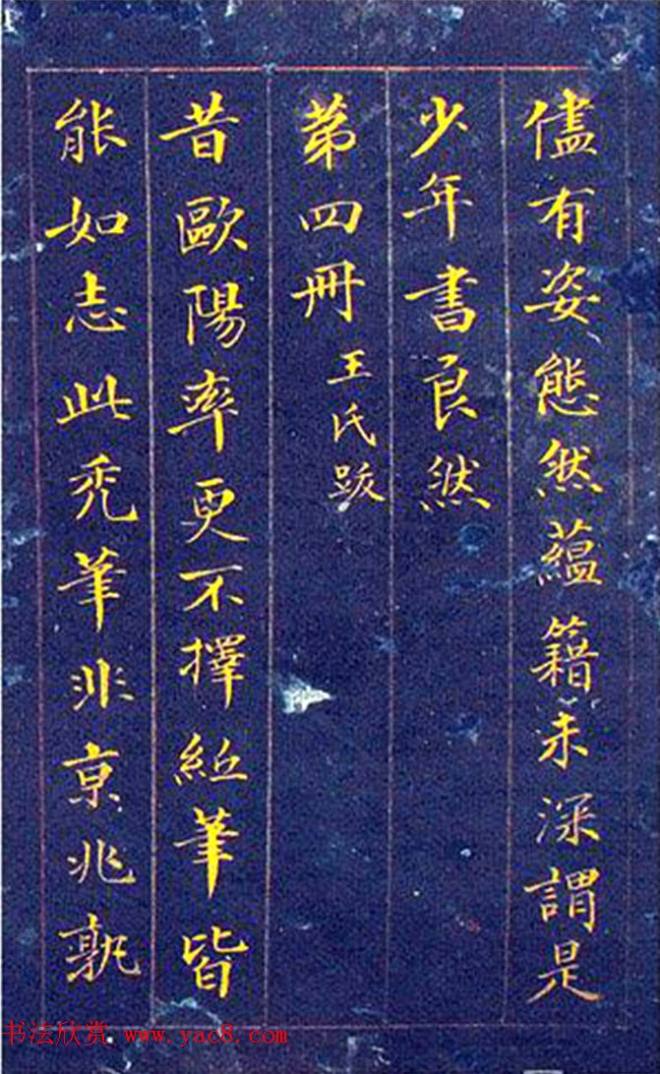 儘有姿態然蘊籍未深謂是
少年書良然
第四冊 王氏跋
昔歐陽率更不擇紙筆皆
能如志此禿筆非京兆孰
书法欣赏 www.yac8.com